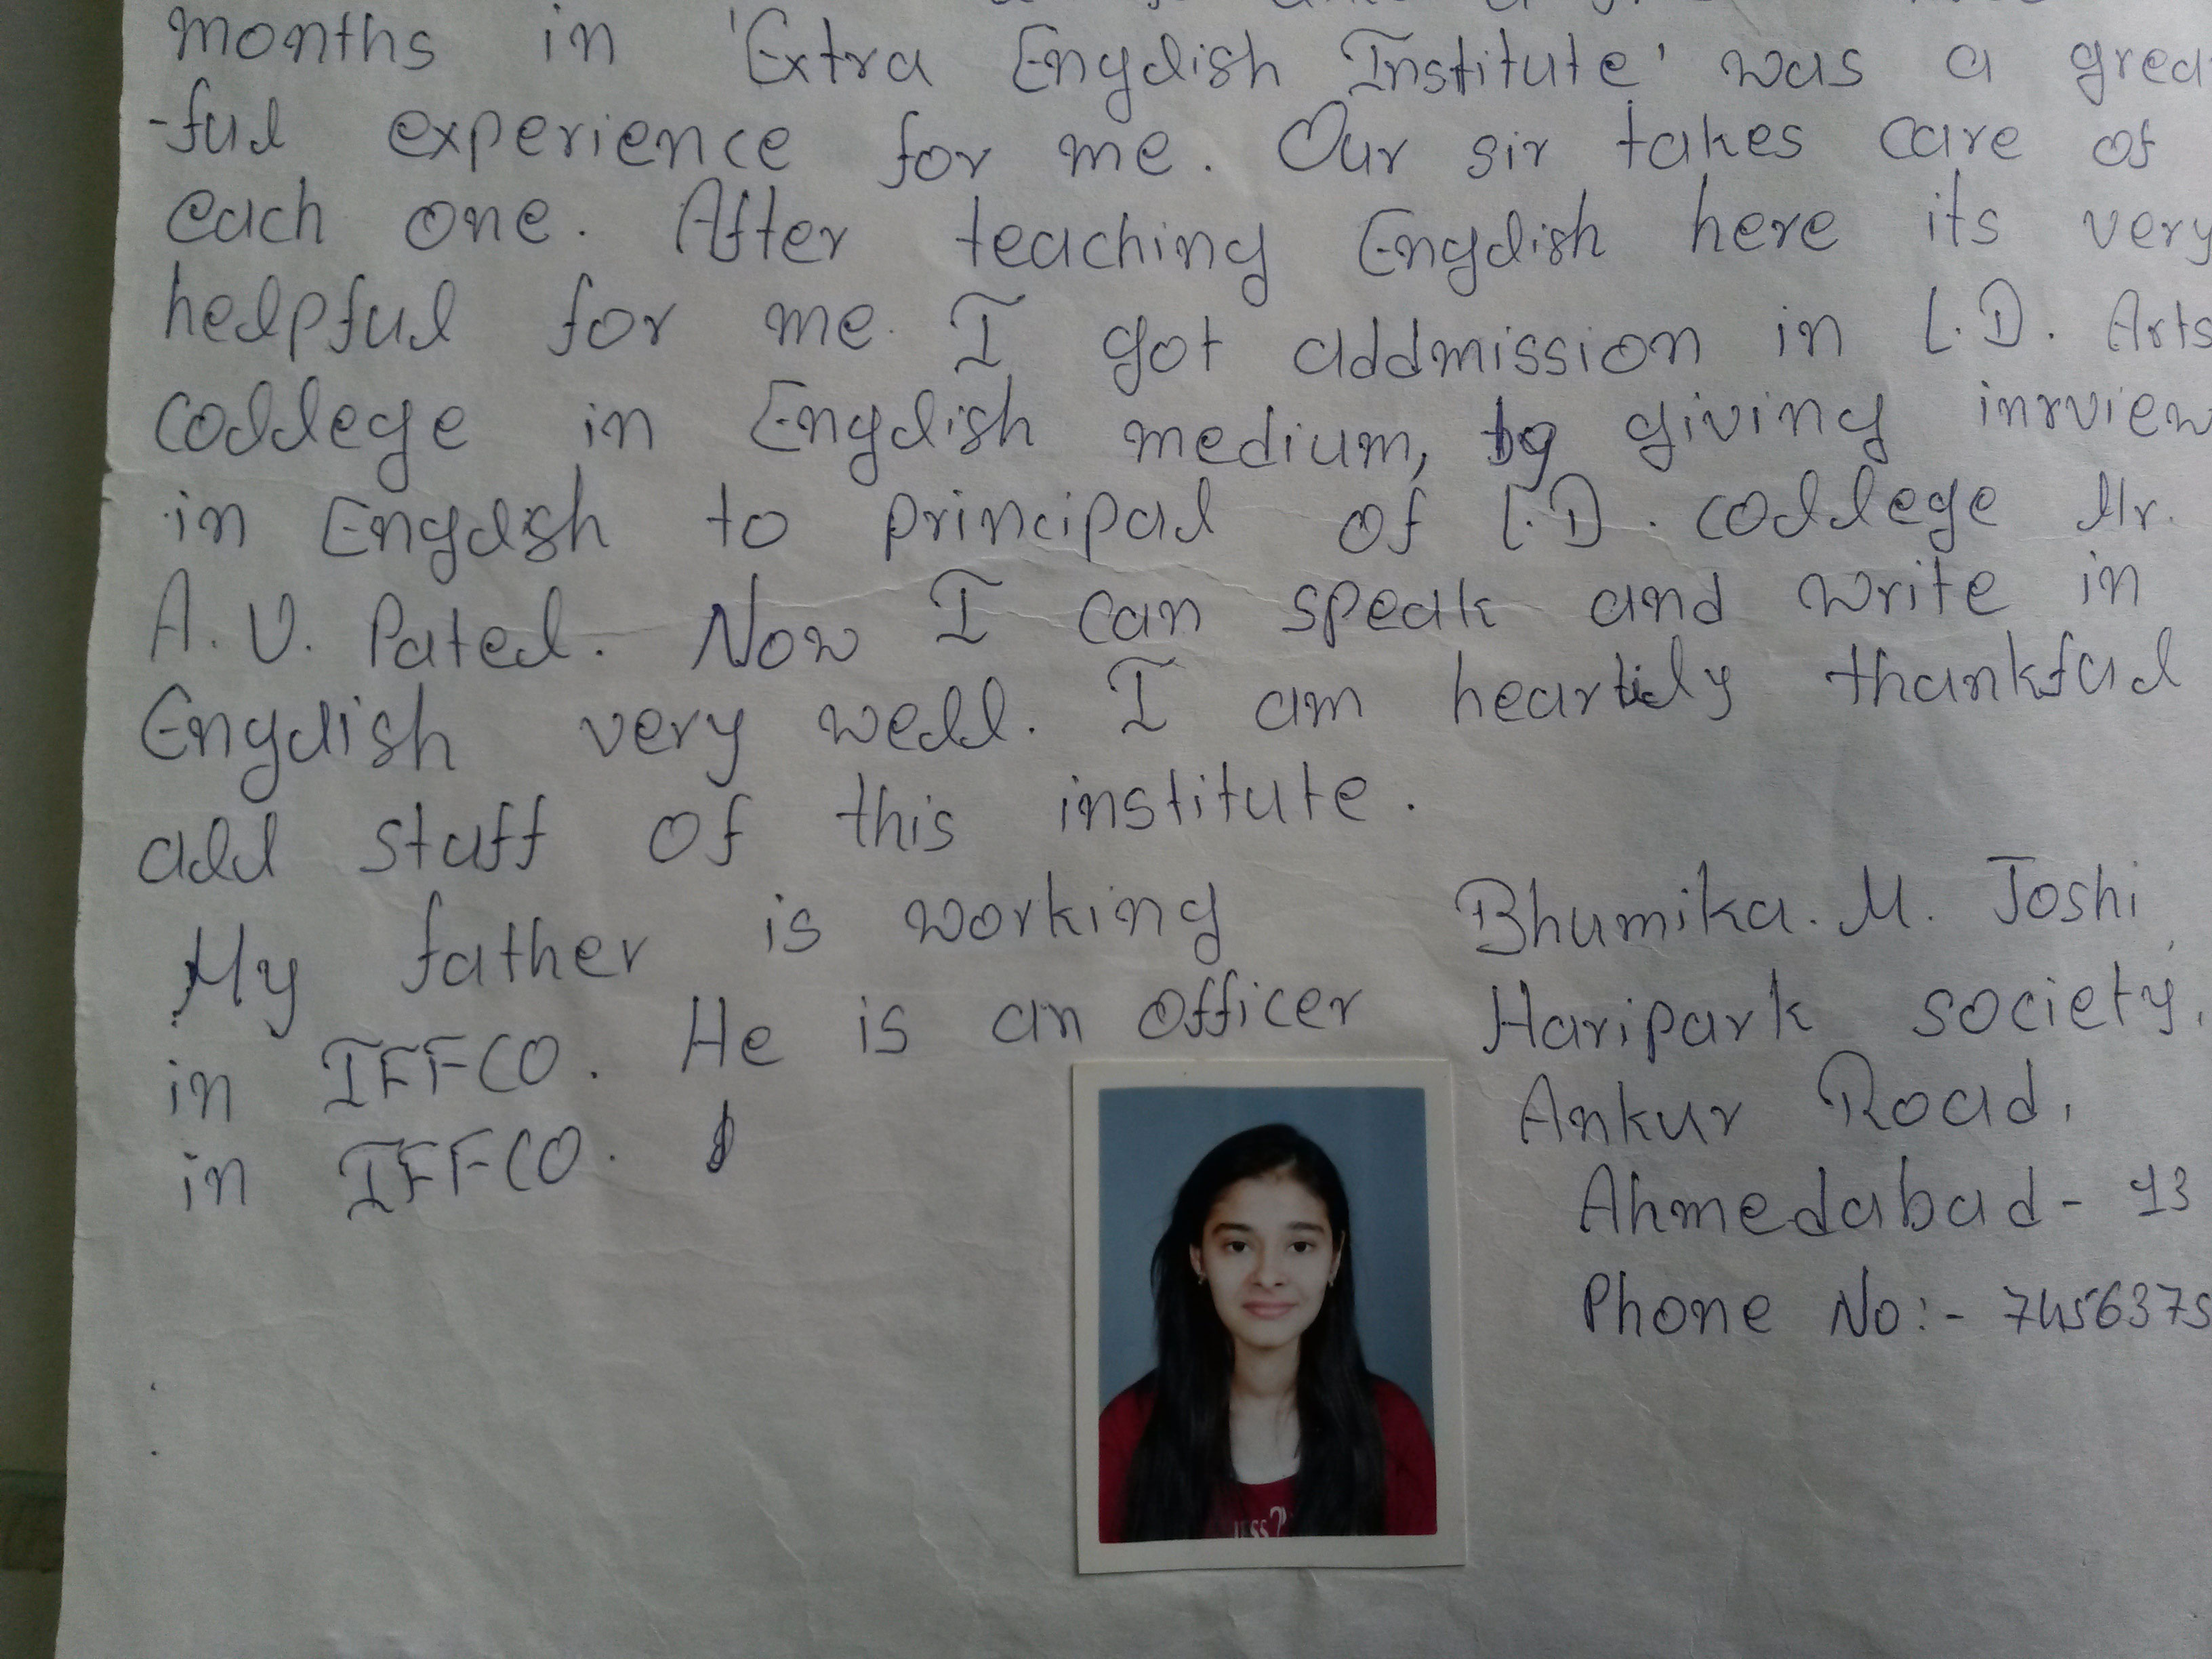 months in 'Extra English Institute' was a grea
-ful experience for me. Our sir takes care of
each one. After teaching English here its very
helpful for me. I got addmission in L.D. Arts
college in English medium, by giving inrview
in English to principal of L.D. college Mr.
A. V. Patel. Now I can speak and write in
English very well. I am heartily thankful
all staff of this institute.
My father is working
in IFFCO. He is an officer
in IFFCO.
Bhumika. M. Joshi,
Haripark society,
Ankur Road,
Ahmedabad - 13
Phone No:- 7456375